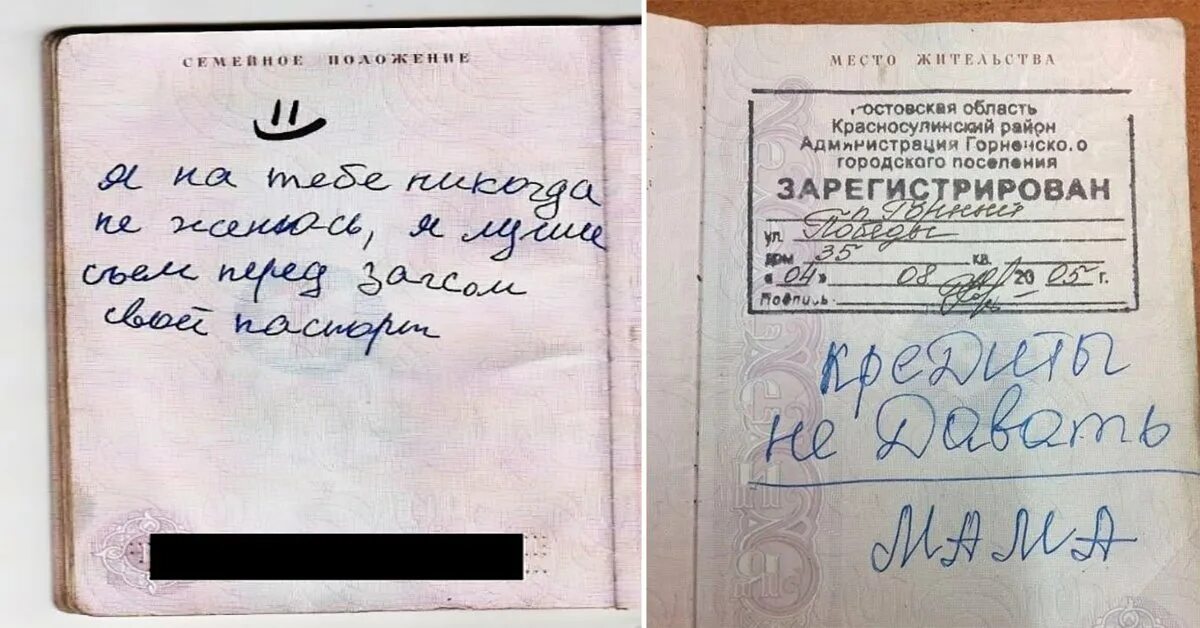 СЕМЕЙНОЕ ПОЛОЖЕНИЕ
я на тебе никогда
не женюсь, я лучше
съем перед загсом
свой паспорт
МЕСТО ЖИТЕЛЬСТВА
Ростовская область
Красносулинский район
Администрация Горненского
городского поселения
ЗАРЕГИСТРИРОВАН
п. Горный
ул. Победы
дом 35 кв.
«04» 08 2005 г.
Подпись
Кредиты
не Давать
МАМА